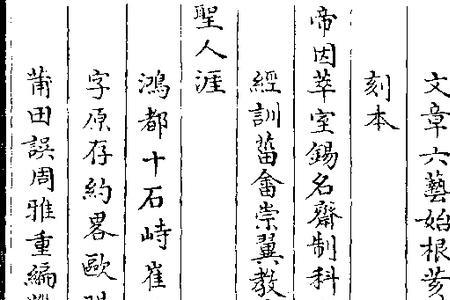 文章六藝始根荄
刻本
帝因萃室錫名齋制科
經訓菑畬崇翼教
聖人涯
鴻都十石峙崔
字原存約畧歐
莆田誤周雅重編